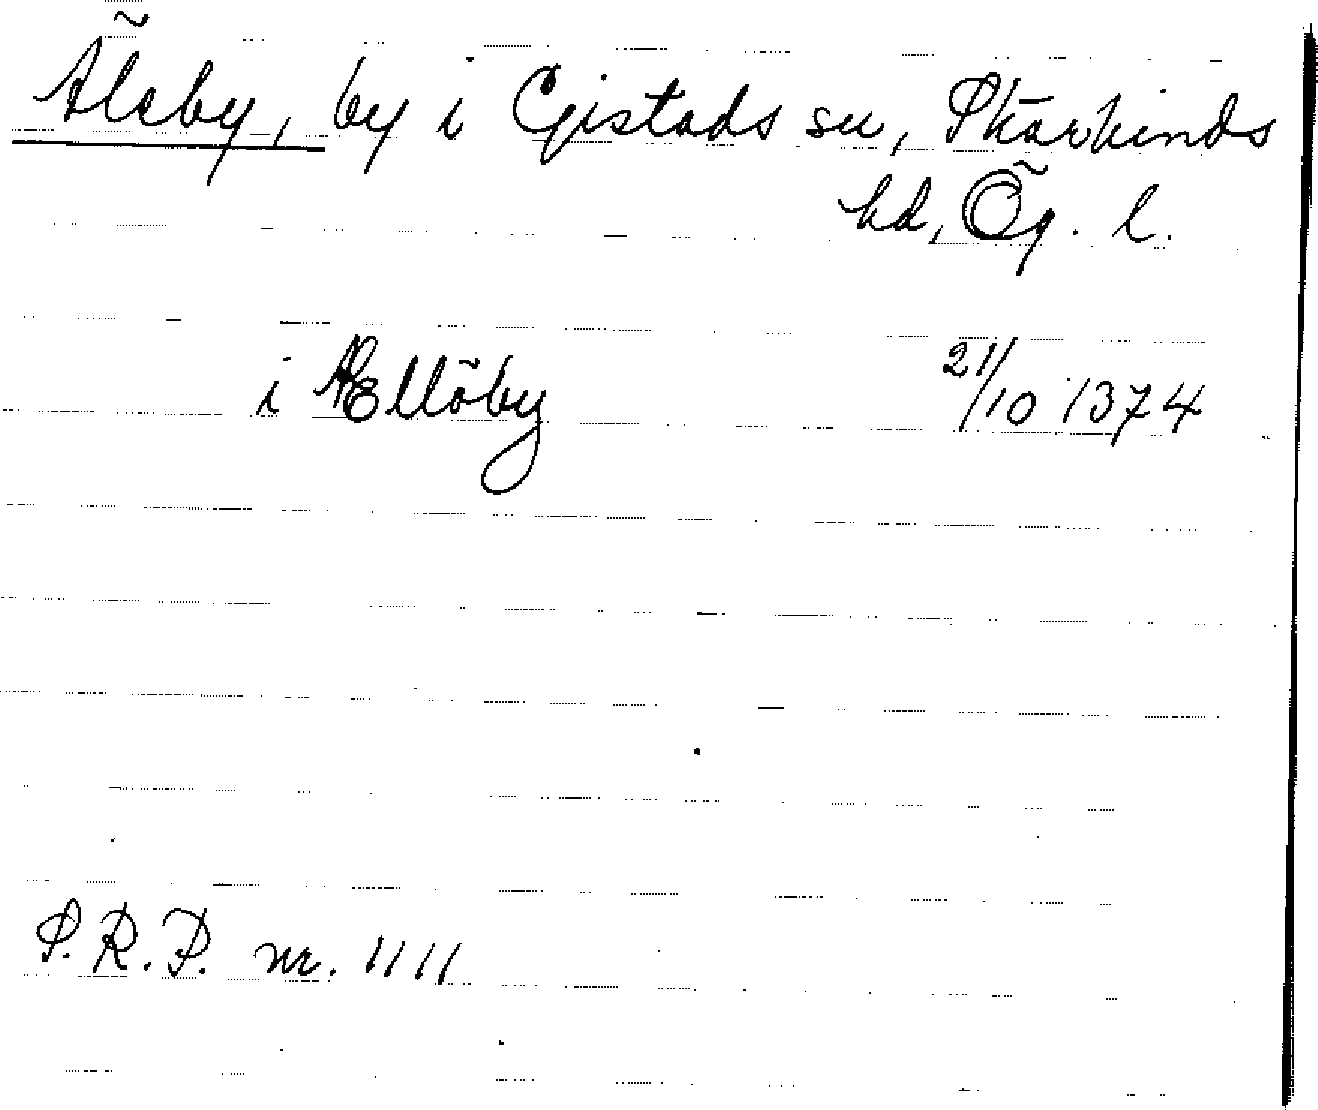 Älaby, by i Gistads sn, Skärkinds
hd, Ög. l.
i Ællöby 21/10 1374
S.R.P. nr. 1111